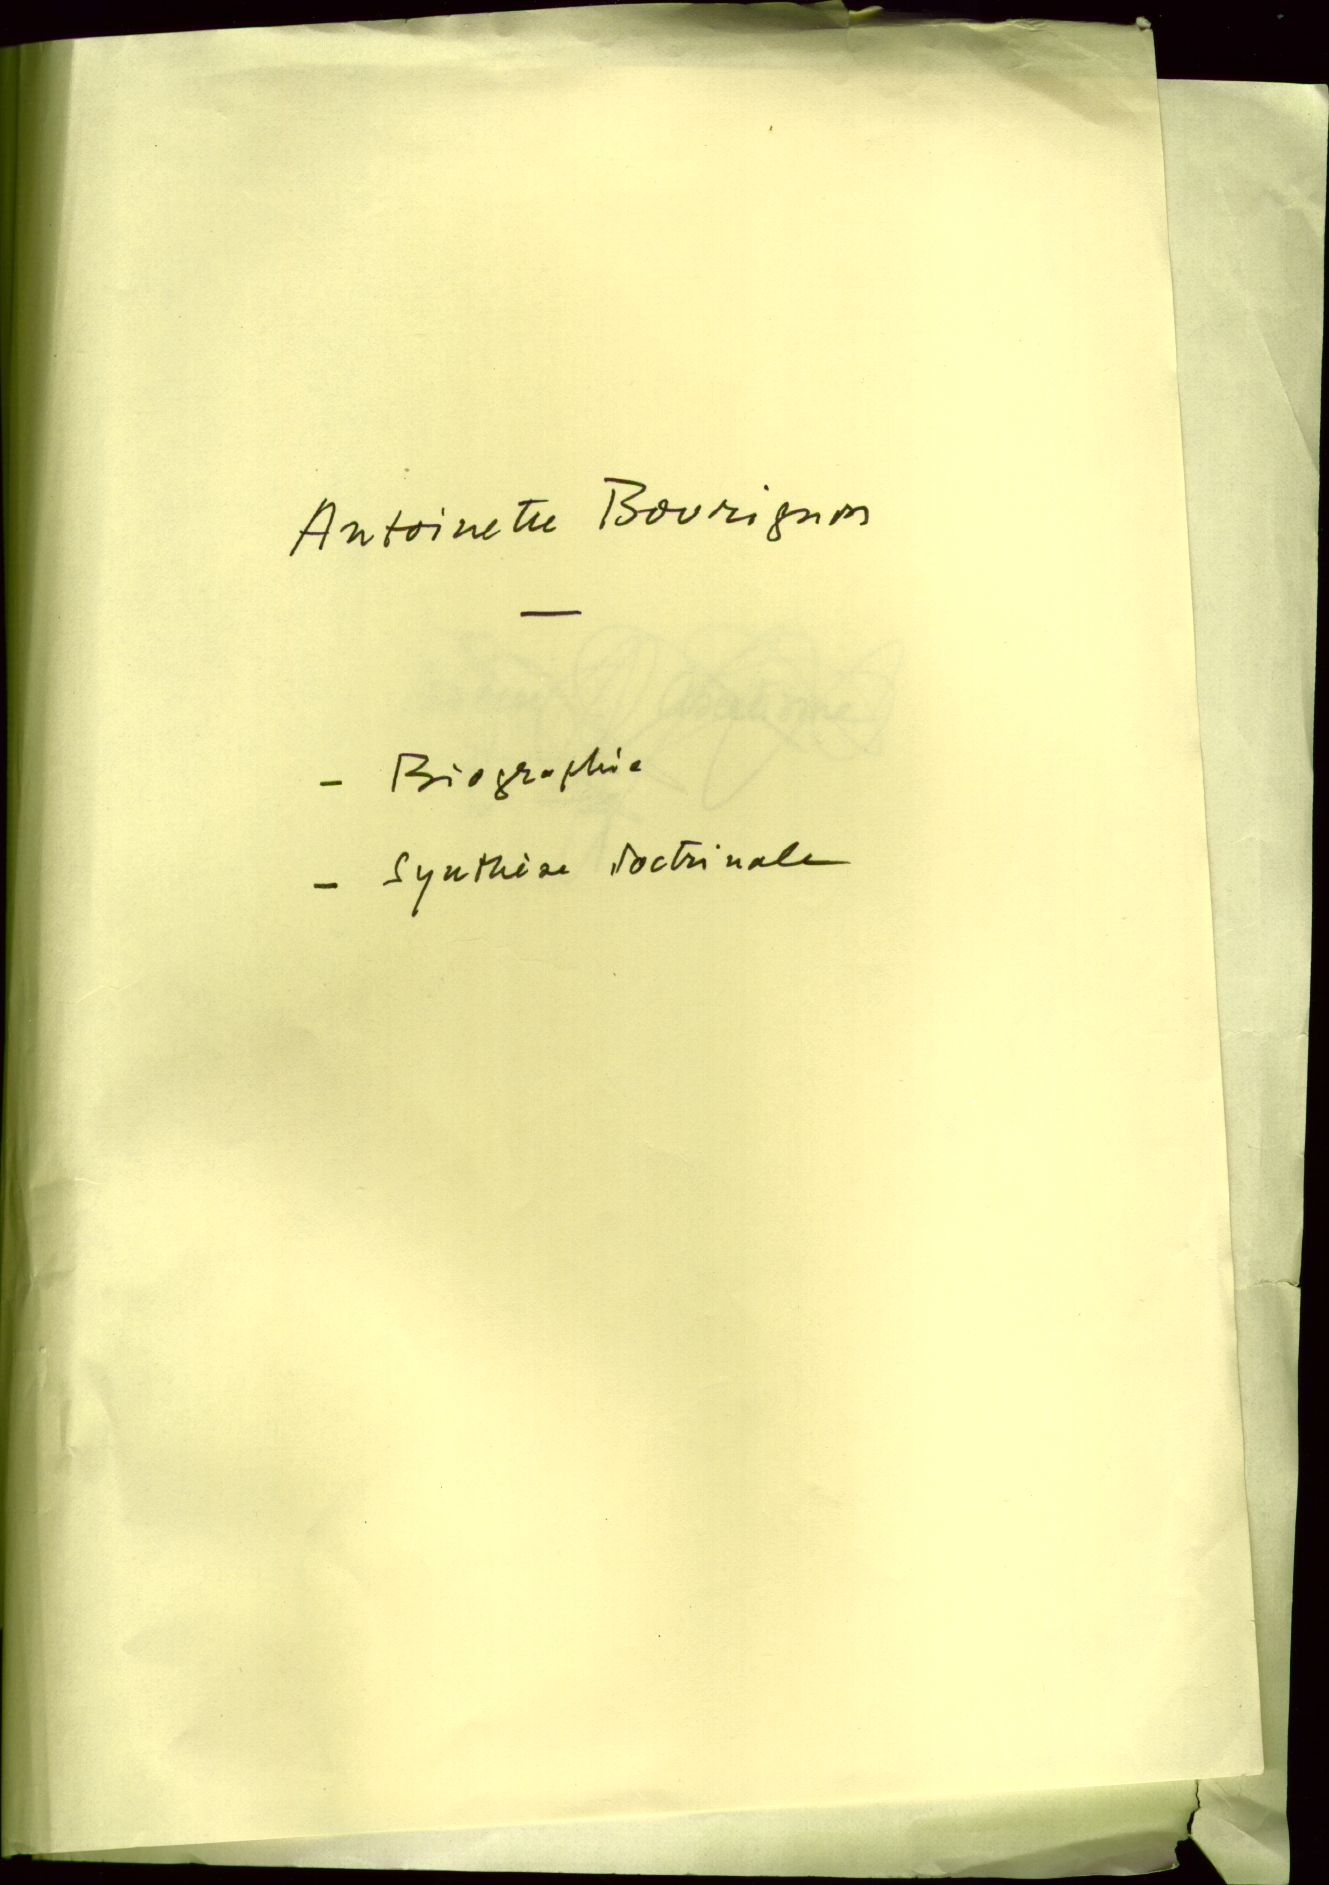 Antoinette Bourignon
—
- Biographie
- Synthèse doctrinale